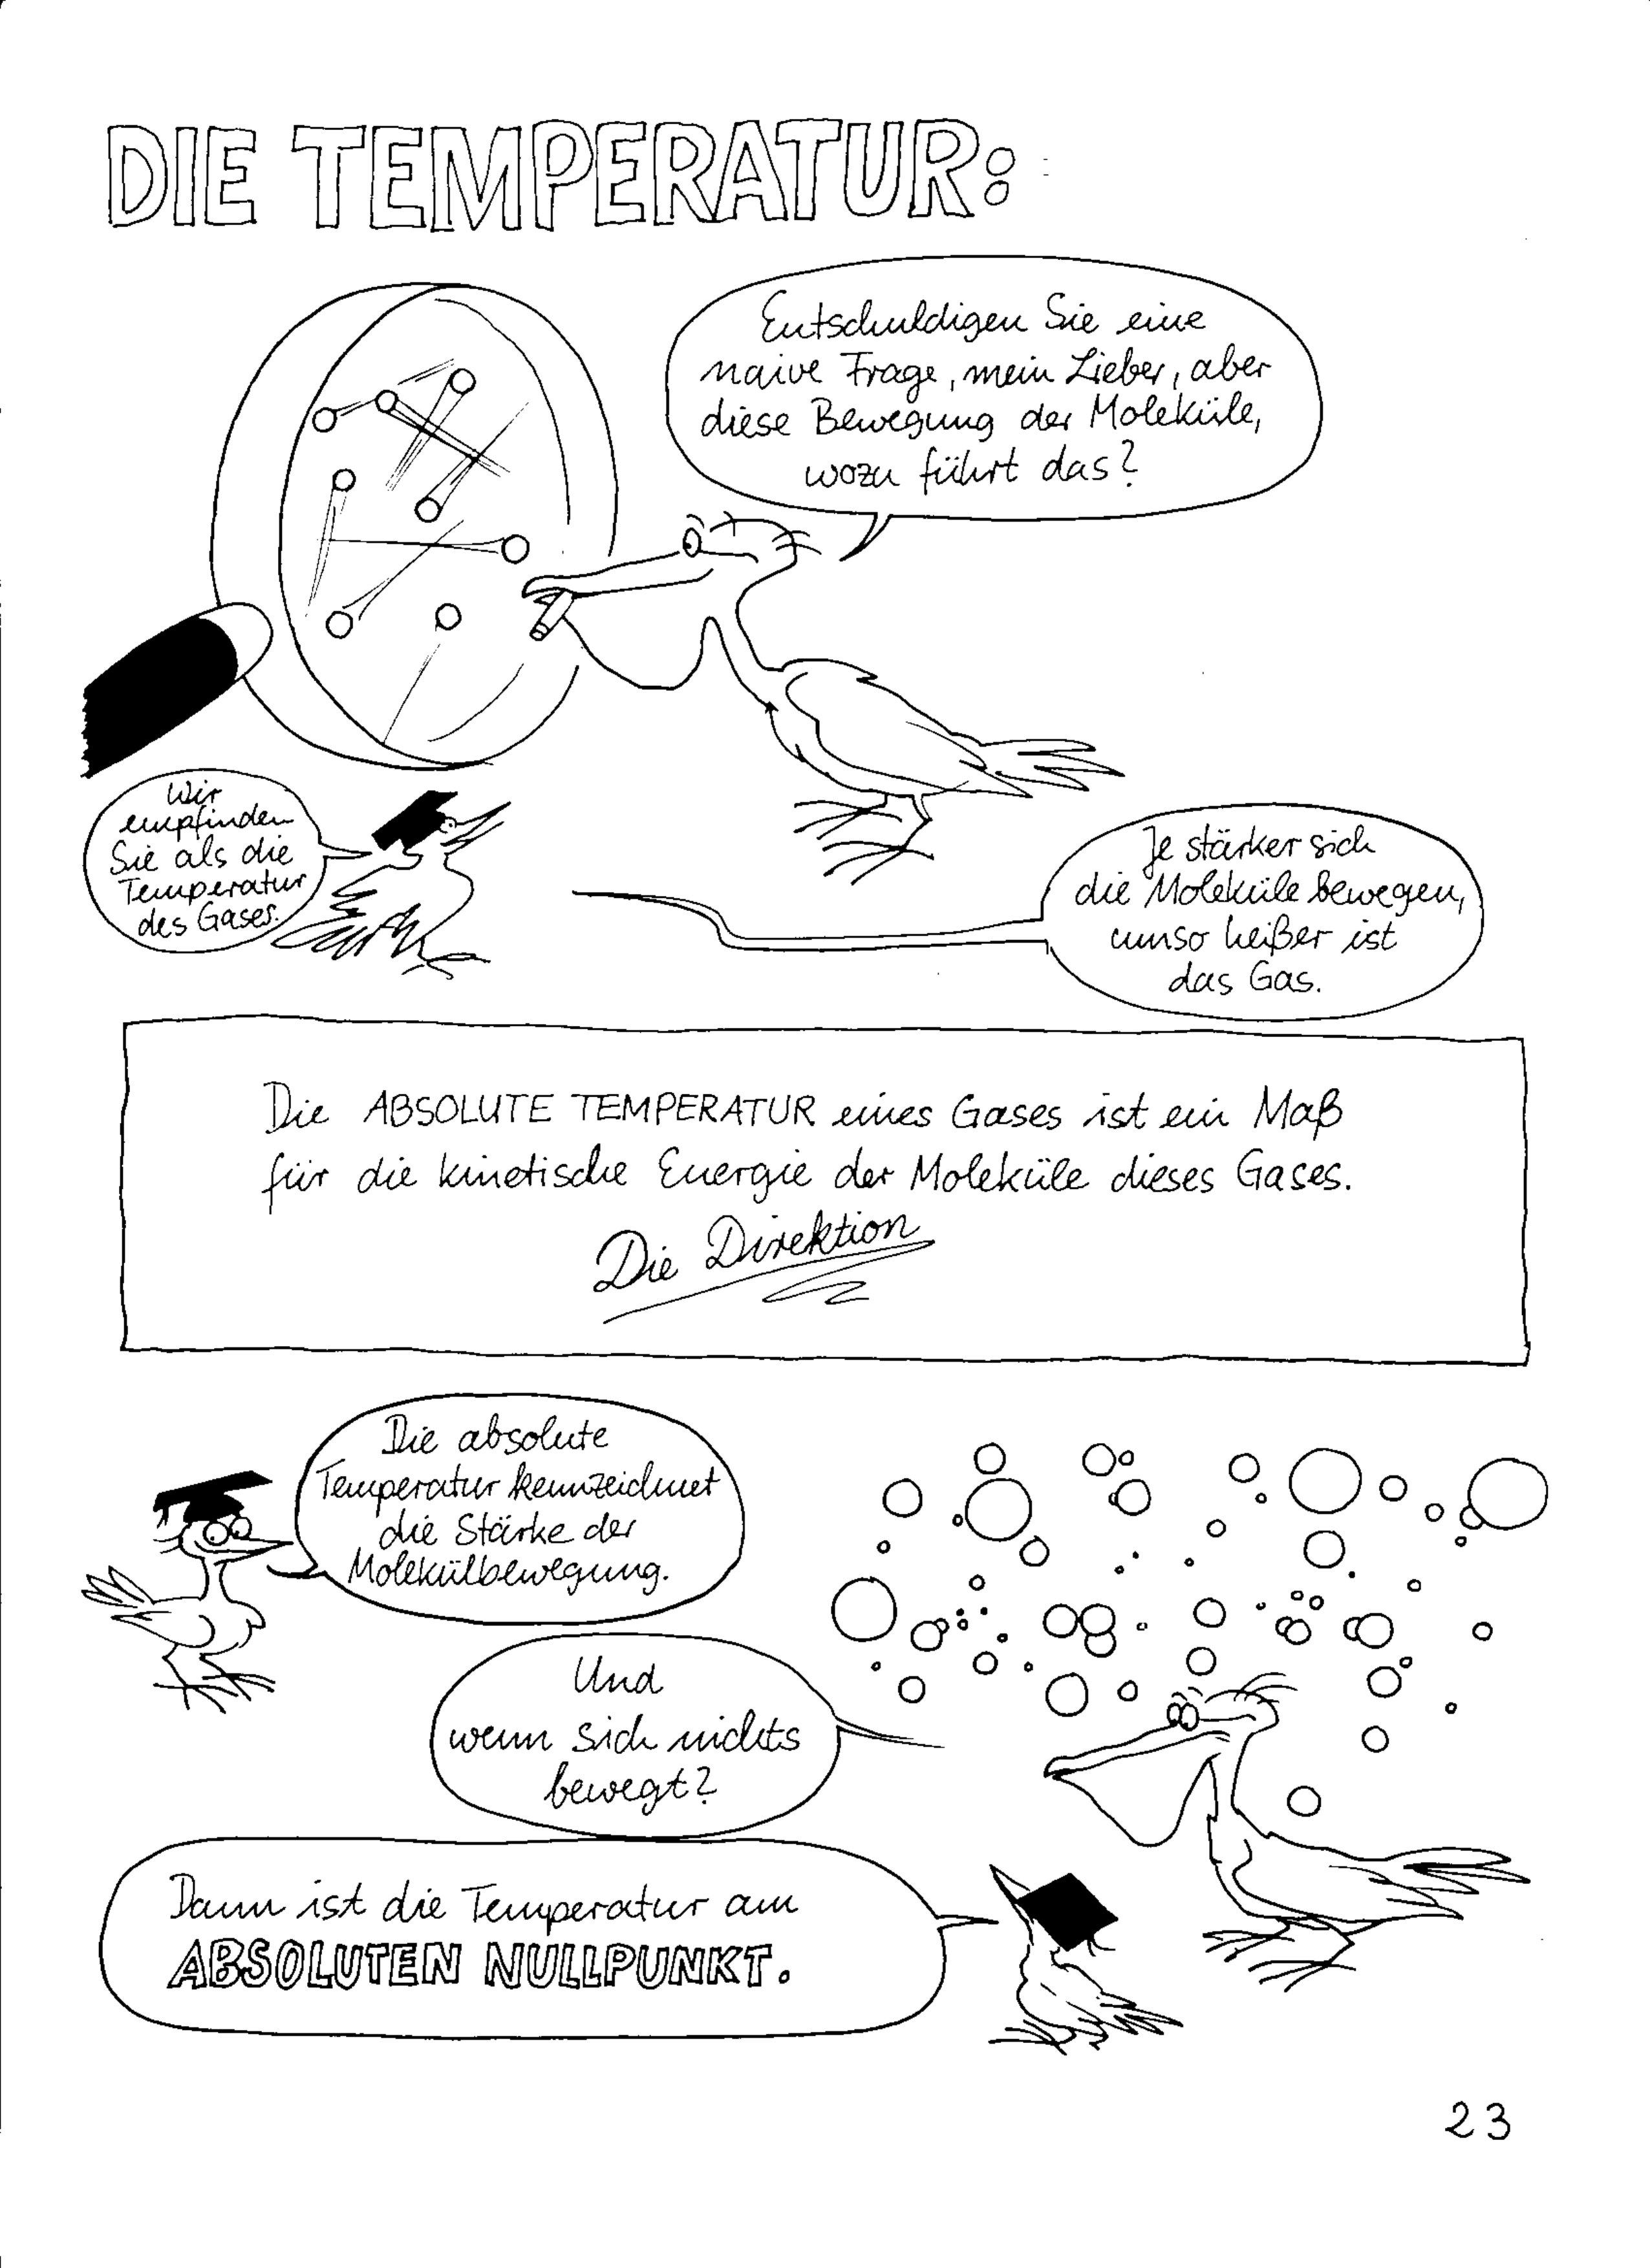 DIE TEMPERATUR:
Entschuldigen Sie eine
naive Frage, mein Lieber, aber
diese Bewegung der Moleküle,
wozu führt das?
Wir
empfinden
Sie als die
Temperatur
des Gases.
Je stärker sich
die Moleküle bewegen,
umso heißer ist
das Gas.
Die ABSOLUTE TEMPERATUR eines Gases ist ein Maß
für die kinetische Energie der Moleküle dieses Gases.
Die Direktion
Die absolute
Temperatur kennzeichnet
die Stärke der
Molekülbewegung.
Und
wenn sich nichts
bewegt?
Dann ist die Temperatur am
ABSOLUTEN NULLPUNKT.
23